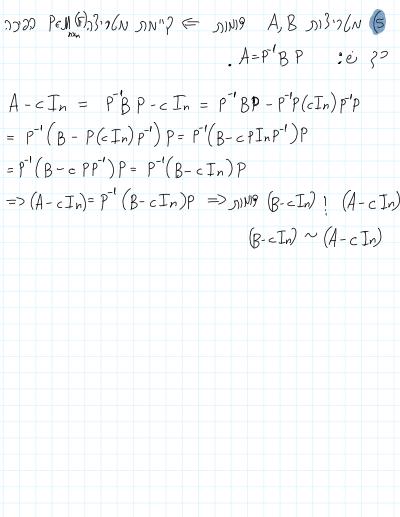 ⓑ A, B מטריצות דומות ⇐ קיימת מטריצה P∈M_{n×n}(𝔽) הפיכה
כך ש: A = P⁻¹BP.
A - cIn = P⁻¹BP - cIn = P⁻¹BP - P⁻¹P(cIn)P⁻¹P
= P⁻¹(B - P(cIn)P⁻¹)P = P⁻¹(B - cPInP⁻¹)P
= P⁻¹(B - cPP⁻¹)P = P⁻¹(B - cIn)P
=> (A - cIn) = P⁻¹(B - cIn)P => דומות (B - cIn) ! (A - cIn)
(B - cIn) ~ (A - cIn)